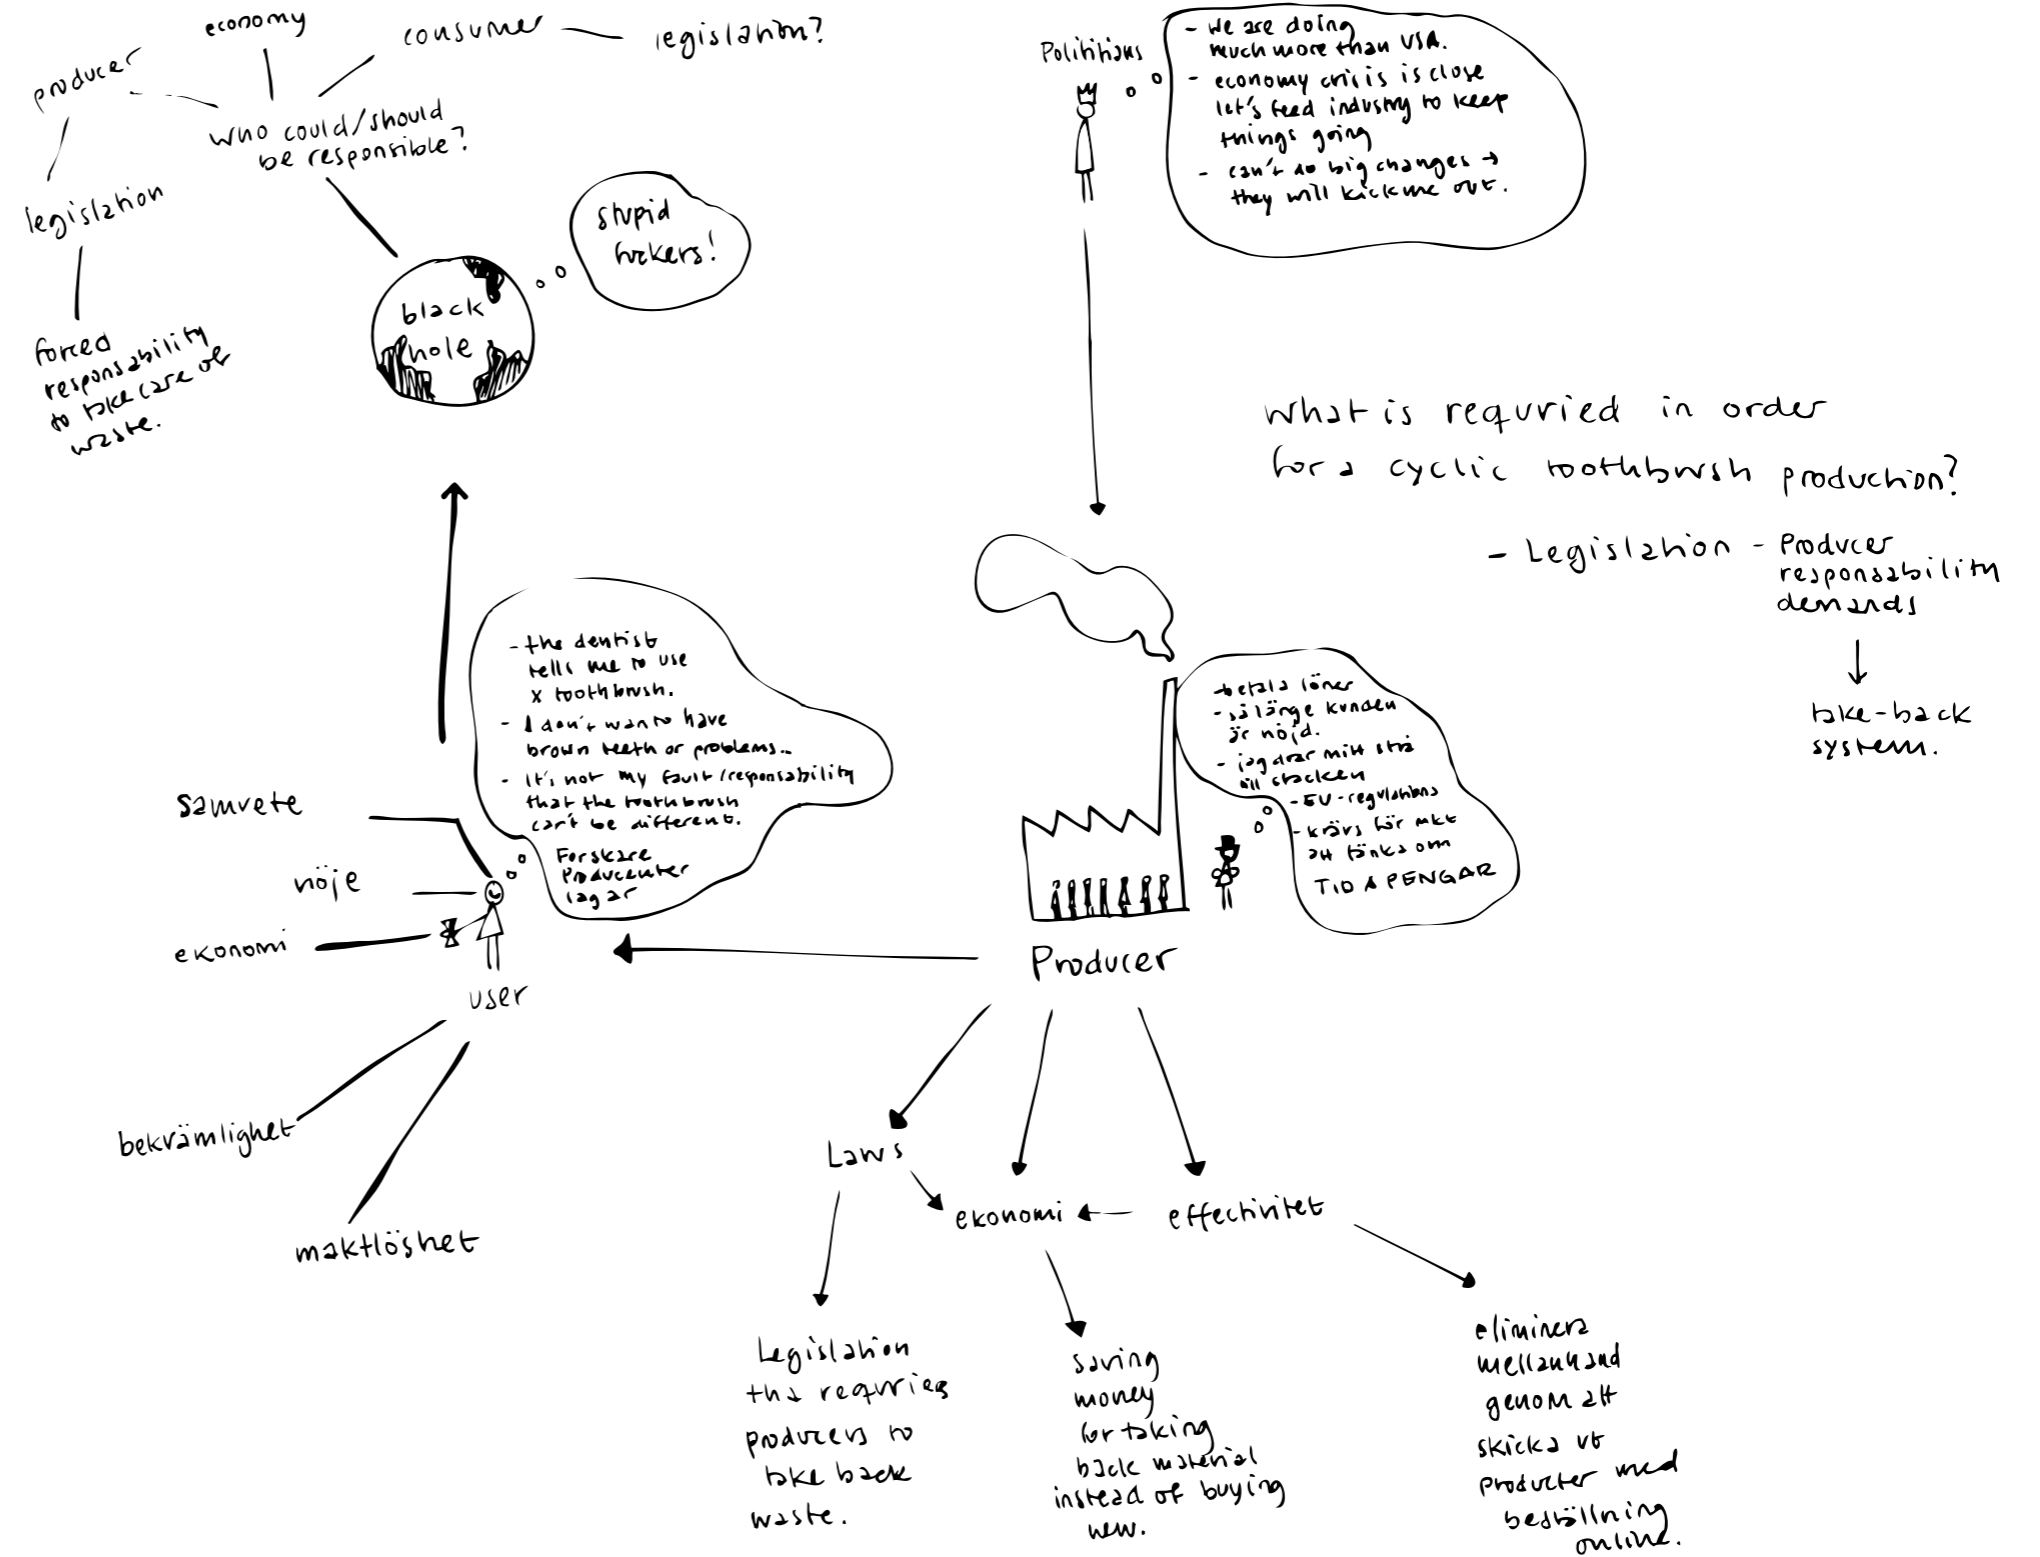 economy
consumer
legislation?
producer
who could/should
be responsible?
legislation
forced
responsability
to take care of
waste.
black
hole
stupid
fuckers!
Polititians
- We are doing
much more than USA.
- economy crisis is close
let's feed industry to keep
things going
- can't do big changes →
they will kick me out.
What is requried in order
for a cyclic toothbrush production?
- Legislation - Producer
responsability
demands
take-back
system.
- the dentist
tells me to use
x toothbrush.
- I don't want to have
brown teeth or problems...
- It's not my fault/responsability
that the toothbrush
can't be different.
Forskare
Producenter
lagar
samvete
nöje
ekonomi
user
bekvämlighet
maktlöshet
- betala löner
- så länge kunden
är nöjd.
- jag drar mitt strå
till stacken
- EU-regulations
- krävs för mkt
att tänka om
TID & PENGAR
Producer
Laws
ekonomi
effectivitet
Legislation
that requries
producers to
take back
waste.
saving
money
for taking
back material
instead of buying
new.
eliminera
mellanhand
genom att
skicka ut
producter med
beställning
online.